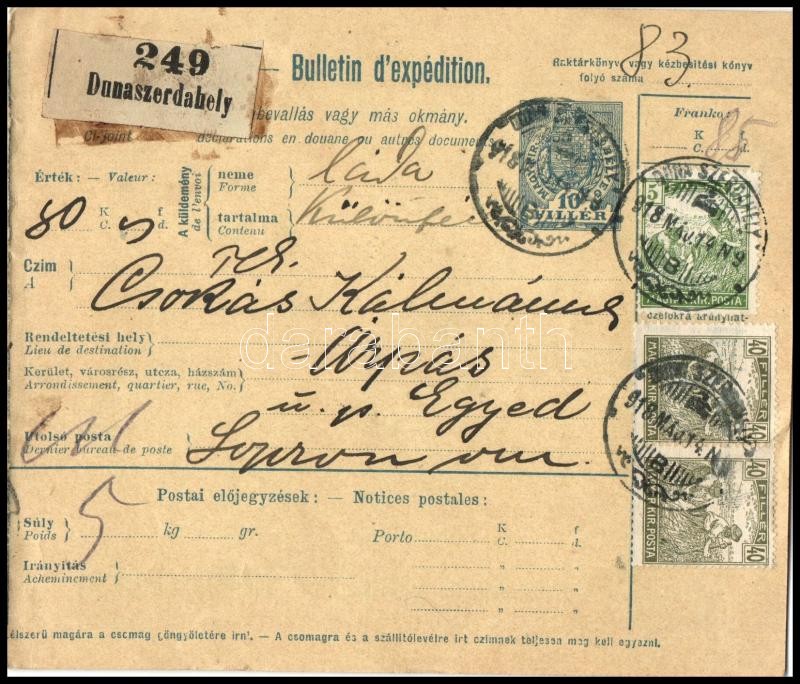 249
Dunaszerdahely
— Bulletin d'expédition.
Raktárkönyv vagy kézbesitési könyv
folyó száma
83
bevallás vagy más okmány.
Ci-joint déclarations en douane ou autres documents
Franko:
K f
C. d.
85
Érték: - Valeur:
A küldemény
de l'envoi
neme
Forme
láda
tartalma
Contenu
K f
C. d.
80
MAGYAR KIR.
10
FILLÉR
DUNASZERDAHELY
918 MÁJ.14 N9
B
5
MAGYAR KIR. POSTA
czélokra arányhat-
Czim
A
Csokás Kálmánné
Rendeltetési hely
Lieu de destination
Árpás
Kerület, városrész, utcza, házszám
Arrondissement, quartier, rue, No.
u. p. Egyed
Utolsó posta
Dernier bureau de poste
Sopron vm
40 FILLÉR 40
MAGYAR KIR. POSTA
918 MÁJ.14 N
B
40 FILLÉR 40
MAGYAR KIR. POSTA
darabanth
Postai előjegyzések: — Notices postales:
Súly
Poids
5
kg gr.
Porto
K f
C. d.
Irányitás
Acheminement
" "
" "
" "
célszerű magára a csomag göngyöletére irni. — A csomagra és a szállitólevélre irt czimnek teljesen meg kell egyezni.